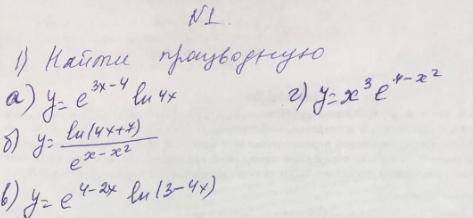 №1.
1) Найти производную
а) y = e^{3x-4} ln 4x
б) y = \frac{ln(4x+7)}{e^{x-x^2}}
в) y = e^{4-2x} ln(3-4x)
г) y = x^3 e^{4-x^2}